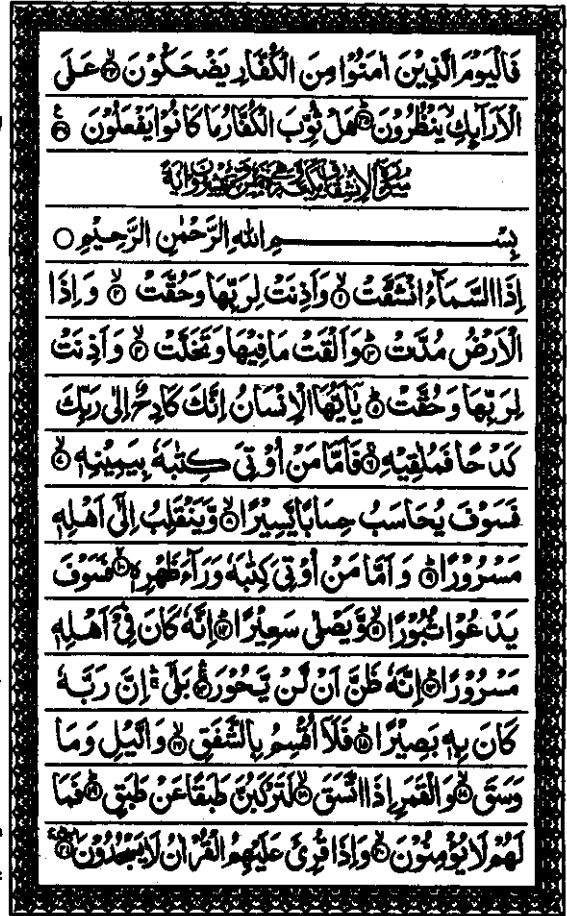 فَالْيَوْمَ الَّذِيْنَ اٰمَنُوْا مِنَ الْكُفَّارِ يَضْحَكُوْنَ ﴿٣٤﴾ عَلَى
الْاَرَآىِٕكِ يَنْظُرُوْنَ ﴿٣٥﴾ هَلْ ثُوِّبَ الْكُفَّارُ مَا كَانُوْا يَفْعَلُوْنَ ﴿٣٦﴾
بِسْمِ اللهِ الرَّحْمٰنِ الرَّحِيْمِ
اِذَا السَّمَآءُ انْشَقَّتْ ﴿١﴾ وَاَذِنَتْ لِرَبِّهَا وَحُقَّتْ ﴿٢﴾ وَاِذَا
الْاَرْضُ مُدَّتْ ﴿٣﴾ وَاَلْقَتْ مَا فِيْهَا وَتَخَلَّتْ ﴿٤﴾ وَاَذِنَتْ
لِرَبِّهَا وَحُقَّتْ ﴿٥﴾ يٰٓاَيُّهَا الْاِنْسَانُ اِنَّكَ كَادِحٌ اِلٰى رَبِّكَ
كَدْحًا فَمُلٰقِيْهِ ﴿٦﴾ فَاَمَّا مَنْ اُوْتِيَ كِتٰبَهٗ بِيَمِيْنِهٖ ﴿٧﴾
فَسَوْفَ يُحَاسَبُ حِسَابًا يَّسِيْرًا ﴿٨﴾ وَّيَنْقَلِبُ اِلٰٓى اَهْلِهٖ
مَسْرُوْرًا ﴿٩﴾ وَاَمَّا مَنْ اُوْتِيَ كِتٰبَهٗ وَرَآءَ ظَهْرِهٖ ﴿١٠﴾ فَسَوْفَ
يَدْعُوْا ثُبُوْرًا ﴿١١﴾ وَّيَصْلٰى سَعِيْرًا ﴿١٢﴾ اِنَّهٗ كَانَ فِيْٓ اَهْلِهٖ
مَسْرُوْرًا ﴿١٣﴾ اِنَّهٗ ظَنَّ اَنْ لَّنْ يَّحُوْرَ ﴿١٤﴾ بَلٰٓى اِنَّ رَبَّهٗ
كَانَ بِهٖ بَصِيْرًا ﴿١٥﴾ فَلَآ اُقْسِمُ بِالشَّفَقِ ﴿١٦﴾ وَالَّيْلِ وَمَا
وَسَقَ ﴿١٧﴾ وَالْقَمَرِ اِذَا اتَّسَقَ ﴿١٨﴾ لَتَرْكَبُنَّ طَبَقًا عَنْ طَبَقٍ ﴿١٩﴾ فَمَا
لَهُمْ لَا يُؤْمِنُوْنَ ﴿٢٠﴾ وَاِذَا قُرِئَ عَلَيْهِمُ الْقُرْاٰنُ لَا يَسْجُدُوْنَ ﴿٢١﴾